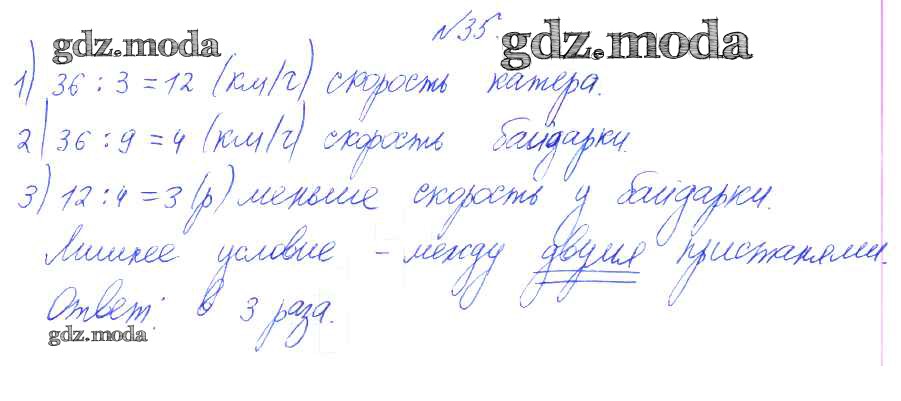 №35.
gdz.moda gdz.moda
1) 36 : 3 = 12 (км/ч) скорость катера.
2) 36 : 9 = 4 (км/ч) скорость байдарки.
3) 12 : 4 = 3 (р) меньше скорость у байдарки.
Лишнее условие - между двумя пристанями.
Ответ: в 3 раза.
gdz.moda